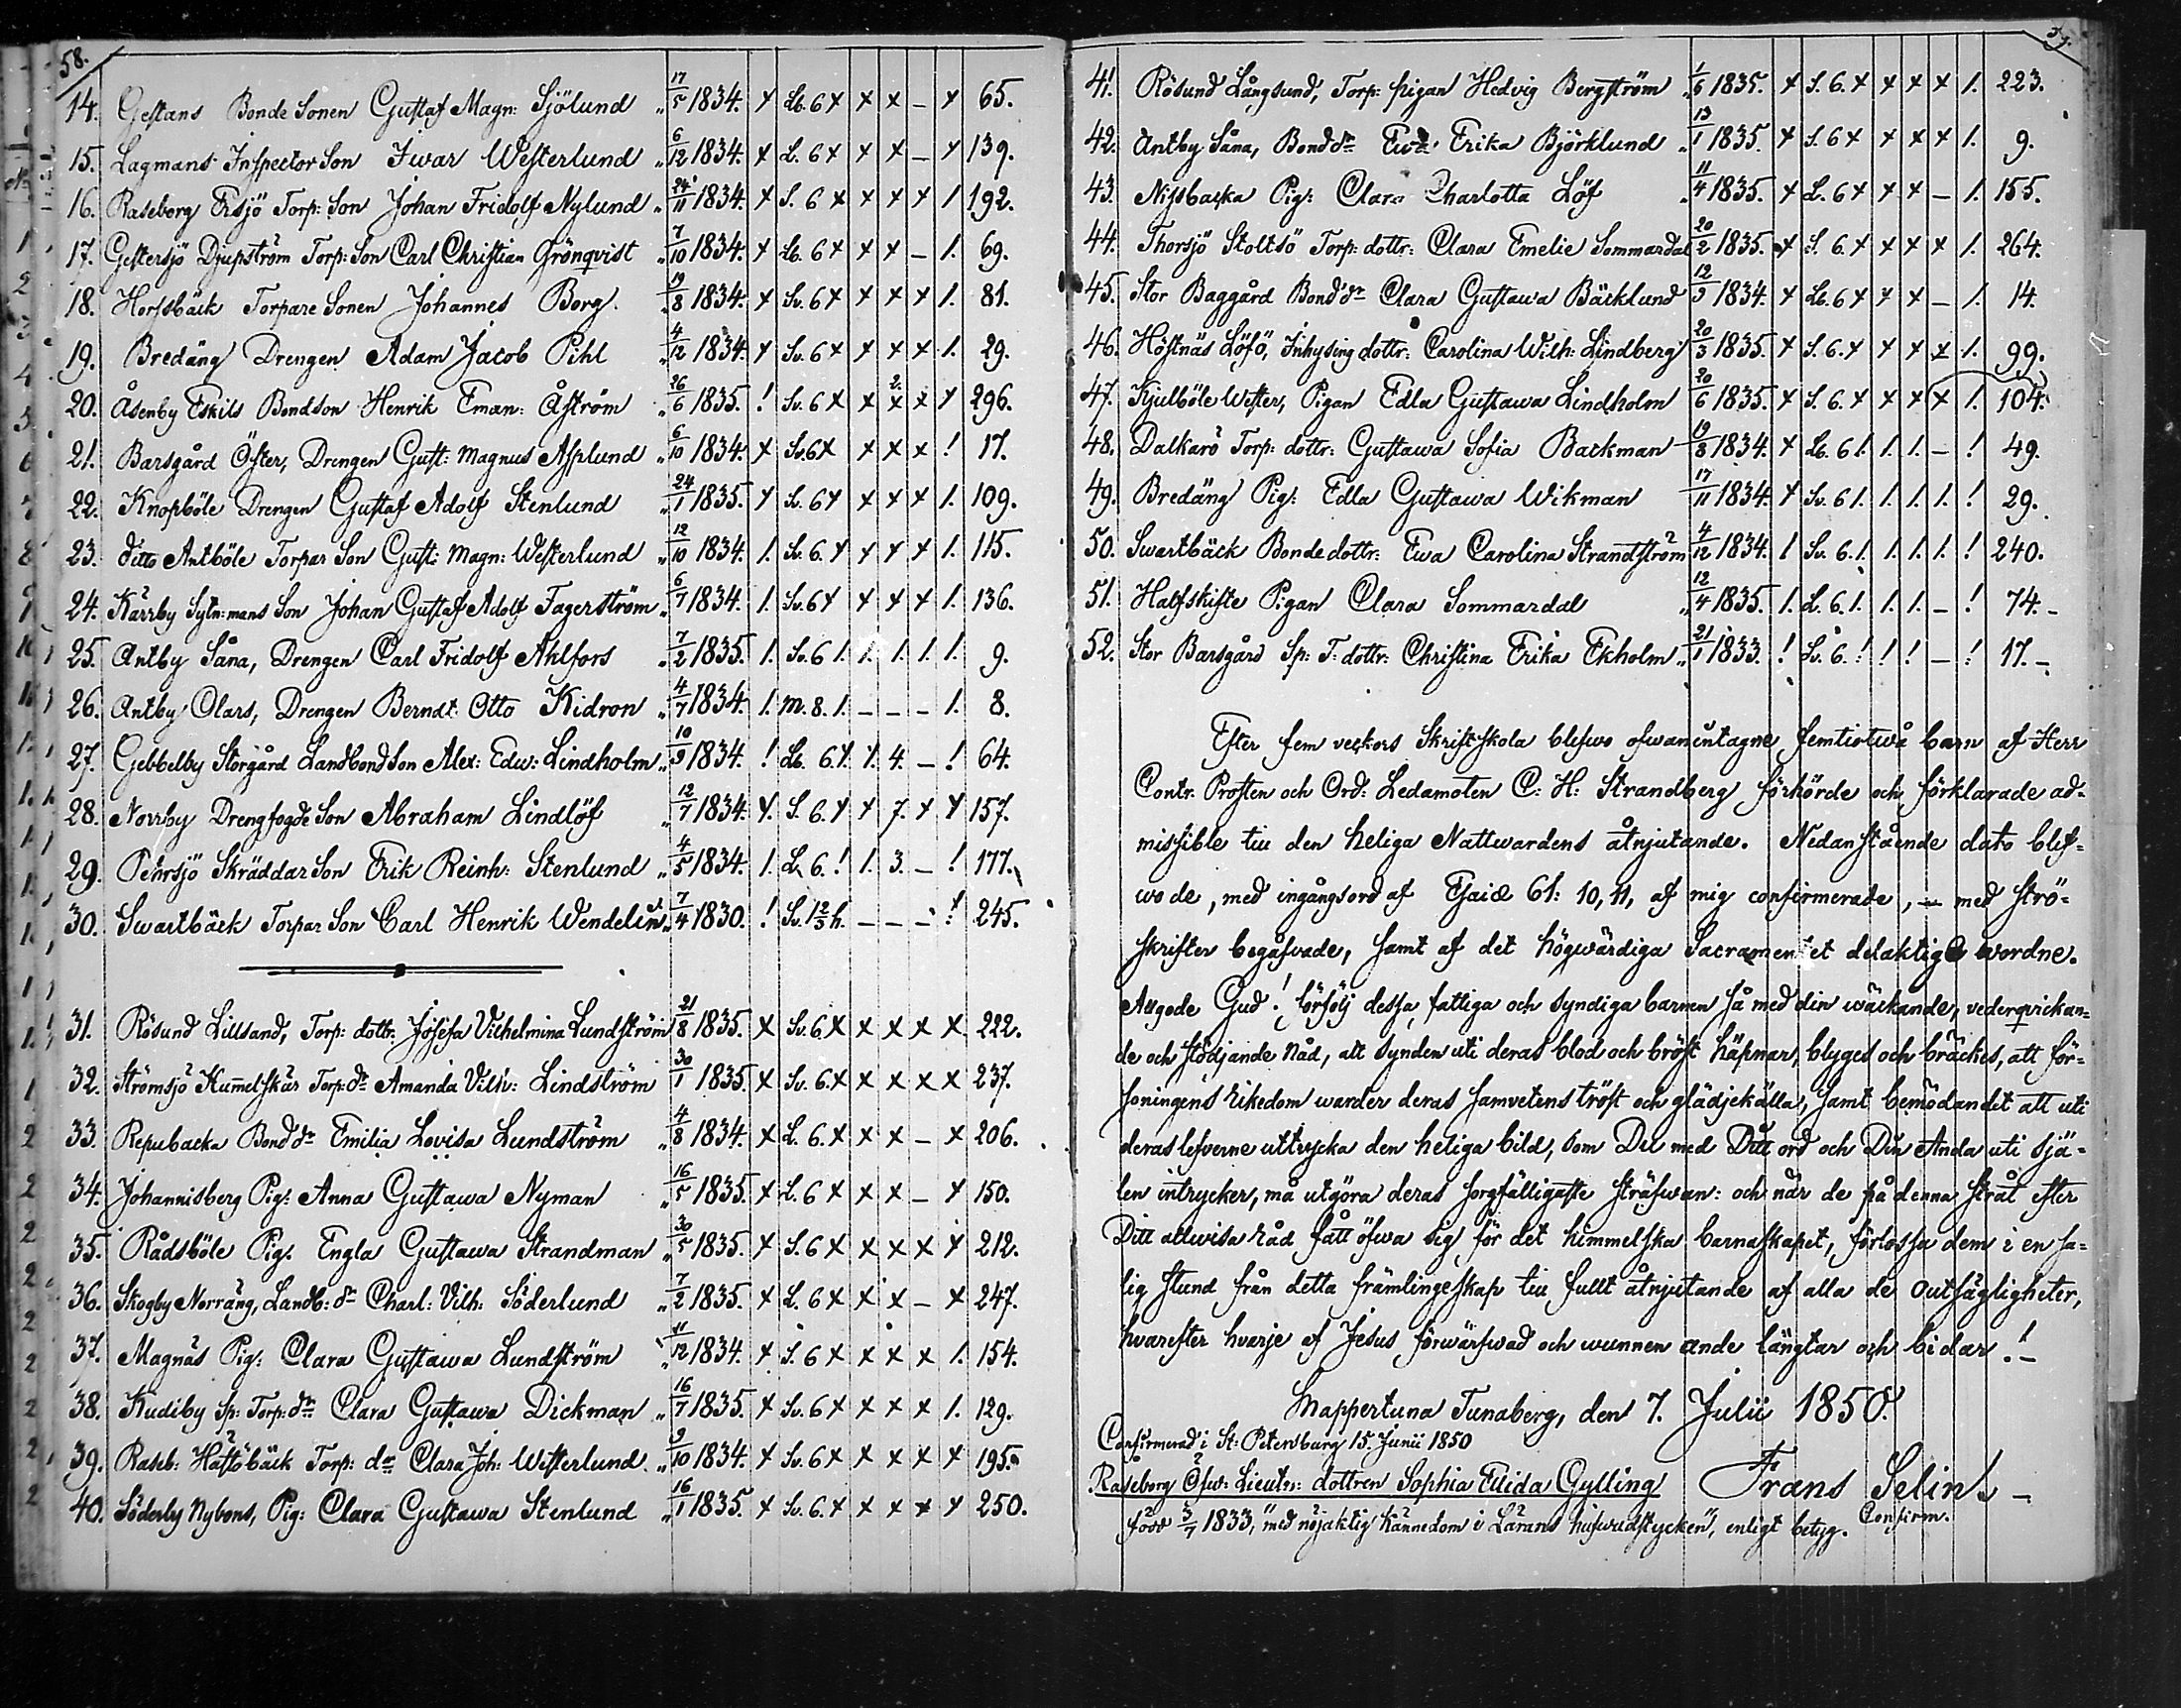 58.
14. Gestans Bonde Sonen Gustaf Magn: Sjölund „ 17/5 1834. x Lb. 6 x x x – x 65.
15. Lagmans Inspector Son Iwar Westerlund „ 6/12 1834. x L. 6 x x x – x 139.
16. Raseborg Ersjö Torp: Son Johan Fridolf Nylund „ 24/11 1834. x S. 6 x x x x 1 192.
17. Gestersjö Djupström Torp: Son Carl Christian Grönqvist „ 7/10 1834. x Lb. 6 x x x – 1. 69.
18. Horsbäck Torpare Sonen Johannes Borg. „ 19/8 1834. x Sv. 6 x x x x 1. 81.
19. Bredäng Drengen Adam Jacob Pihl „ 4/12 1834. x Sv. 6 x x x x 1. 29.
20. Åsenby Eskils Bondson Henrik Eman: Åström „ 26/6 1835. ! Sv. 6 x x 2. x x x 296.
21. Barsgård Öster, Drengen Gust: Magnus Asplund „ 6/10 1834. x Sv. 6 x x x x ! 17.
22. Knopböle Drengen Gustaf Adolf Stenlund „ 24/1 1835. x Sv. 6 x x x x 1. 109.
23. ditto Antböle Torpar Son Gust: Magn: Westerlund „ 12/10 1834. 1. Sv. 6. x x x x 1. 115.
24. Kärrby Sytn:mans Son Johan Gustaf Adolf Fagerström „ 6/7 1834. 1. Sv. 6 x x x x 1. 136.
25. Antby Såna, Drengen Carl Fridolf Ahlfors „ 7/2 1835. 1. Sv. 6 1. 1. 1. 1. 1. 9.
26. Antby Olars, Drengen Berndt Otto Kidron „ 4/7 1834. 1. m. 8. 1. – – – 1. 8.
27. Gebbelby Storgård Landbond Son Alex: Edw: Lindholm „ 10/9 1834. ! Lb. 6. 1. 1. 4. – ! 64.
28. Norrby Drengfogde Son Abraham Lindlöf „ 12/7 1834. x. S. 6. x x 7. x x 157.
29. Pehrsjö Skräddar Son Erik Reinh: Stenlund „ 4/5 1834. 1. L. 6. ! 1. 3. – ! 177.
30. Swartbäck Torpar Son Carl Henrik Wendelin „ 7/4 1830. ! Sv. 1 2/3 h. – – – ! 245.
31. Rösund Lillsand, Torp: dottr: Josefa Vilhelmina Lundström 21/8 1835. x Sv. 6 x x x x x 222.
32. Strömsjö Kamelskär Torp: dr Amanda Vilh: Lindström 30/1 1835. x Sv. 6. x x x x x 237.
33. Repubacka Bond dr Emilia Lovisa Lundström „ 4/8 1834. x L. 6. x x x – x 206.
34. Johannisberg Pig: Anna Gustawa Nyman „ 16/5 1835. x L. 6 x x x – x 150.
35. Rådsböle Pig: Engla Gustawa Strandman „ 30/5 1835. x S. 6 x x x x x 212.
36. Skogby Norräng, Landb: dr Charl: Vilh: Söderlund „ 7/2 1835. x L. 6 x x x – x 247.
37. Magnäs Pig: Clara Gustawa Lundström „ 11/12 1834. x S. 6 x x x x 1. 154.
38. Kudiby Sp: Torp: dr Clara Gustawa Dickman „ 16/7 1835. x Sv. 6 x x x x 1. 129.
39. Raseb: Hästöbäck Torp: dr Clara Joh: Westerlund „ 9/10 1834. x Sv. 6 x x x x x 195.
40. Söderby Nybons, Pig: Clara Gustawa Stenlund „ 16/1 1835. x Sv. 6. x x x x x 250.
41. Rösund Långsund, Torp: pigan Hedvig Bergström „ 1/6 1835. x S. 6. x x x x 1. 223.
42. Antby Såna, Bond dr Ewa Erika Björklund „ 13/1 1835. x S. 6 x x x x 1. 9.
43. Nissbacka Pig: Clara Charlotta Löf „ 11/4 1835. x L. 6 x x x – 1. 155.
44. Thorsjö Stoltsö Torp: dottr: Clara Emelie Sommardal 20/2 1835. x S. 6. x x x x 1. 264.
45. Stor Baggård Bond dr Clara Gustawa Bäcklund 12/9 1834. x Lb. 6 x x x – 1. 14.
46. Höstnäs Löfö, Inhysing dottr: Carolina Wilh: Lindberg 20/3 1835. x S. 6. x x x x 1. 99.
47. Kjulböle Wester, Pigan Edla Gustawa Lindholm 20/6 1835. x S. 6. x x x x 1. 104.
48. Dalkarö Torp: dottr: Gustawa Sofia Backman 19/8 1834. x Lb. 6 1. 1. 1. – ! 49.
49. Bredäng Pig: Edla Gustawa Wikman 17/11 1834. x Sv. 6 1. 1. 1. 1. ! 29.
50. Swartbäck Bondedottr: Ewa Carolina Strandström 4/12 1834. 1 Sv. 6. 1. 1. 1. 1. ! 240.
51. Halfskifte Pigan Clara Sommardal „ 12/4 1835. 1. L. 6. 1. 1. 1. – ! 74. –
52. Stor Barsgård Sp: T: dottr: Christina Erika Ekholm „ 21/1 1833. ! Lv. 6. ! ! ! – ! 17. –
Efter fem veckors Skriftskola blefwo ofwanintagne femtiotwå barn af Herr
Contr. Prosten och Ord: Ledamoten C: H: Strandberg förhörde och förklarade ad-
missible till den heliga Nattwardens åtnjutande. Nedanstående dato blef-
wo de, med ingångsord af Esaiæ 61: 10, 11, af mig confirmerade, – med strö-
skrifter begåfvade, samt af det högwärdiga Sacramentet delaktige wordne.
Allgode Gud! förfölj dessa fattiga och syndiga barnen så med din wäckande, vederqvickan-
de och stödjande Nåd, att synden uti deras blod och bröst häpnar, blyges och bräckes, att för-
soningens rikedom warder deras samvetens tröst och glädjekälla, samt bemödandet att uti
deras lefverne uttrycka den heliga bild, som Du med Ditt ord och Din Anda uti sjä-
len intrycker, må utgöra deras sorgfälligaste sträfwan: och när de på denna stråt efter
Ditt allwisa råd fått öfwa sig för det himmelska barnaskapet, förlossa dem i en sa-
lig stund från detta främlingeskap till fullt åtnjutande af alla de outsägligheter,
hvarefter hvarje af Jesus förwärfwad och wunnen ande längtar och bidar! –
Snappertuna Tunaberg, den 7. Julii 1850.
Confirmerad i St: Petersburg 15. Junii 1850
Raseborg Öfw: Lieutn: dottren Sophia Elida Gylling Frans Selin. –
född 3/7 1833, "med nöjaktig kännedom i Lärans hufwudstycken", enligt betyg. Confirm.